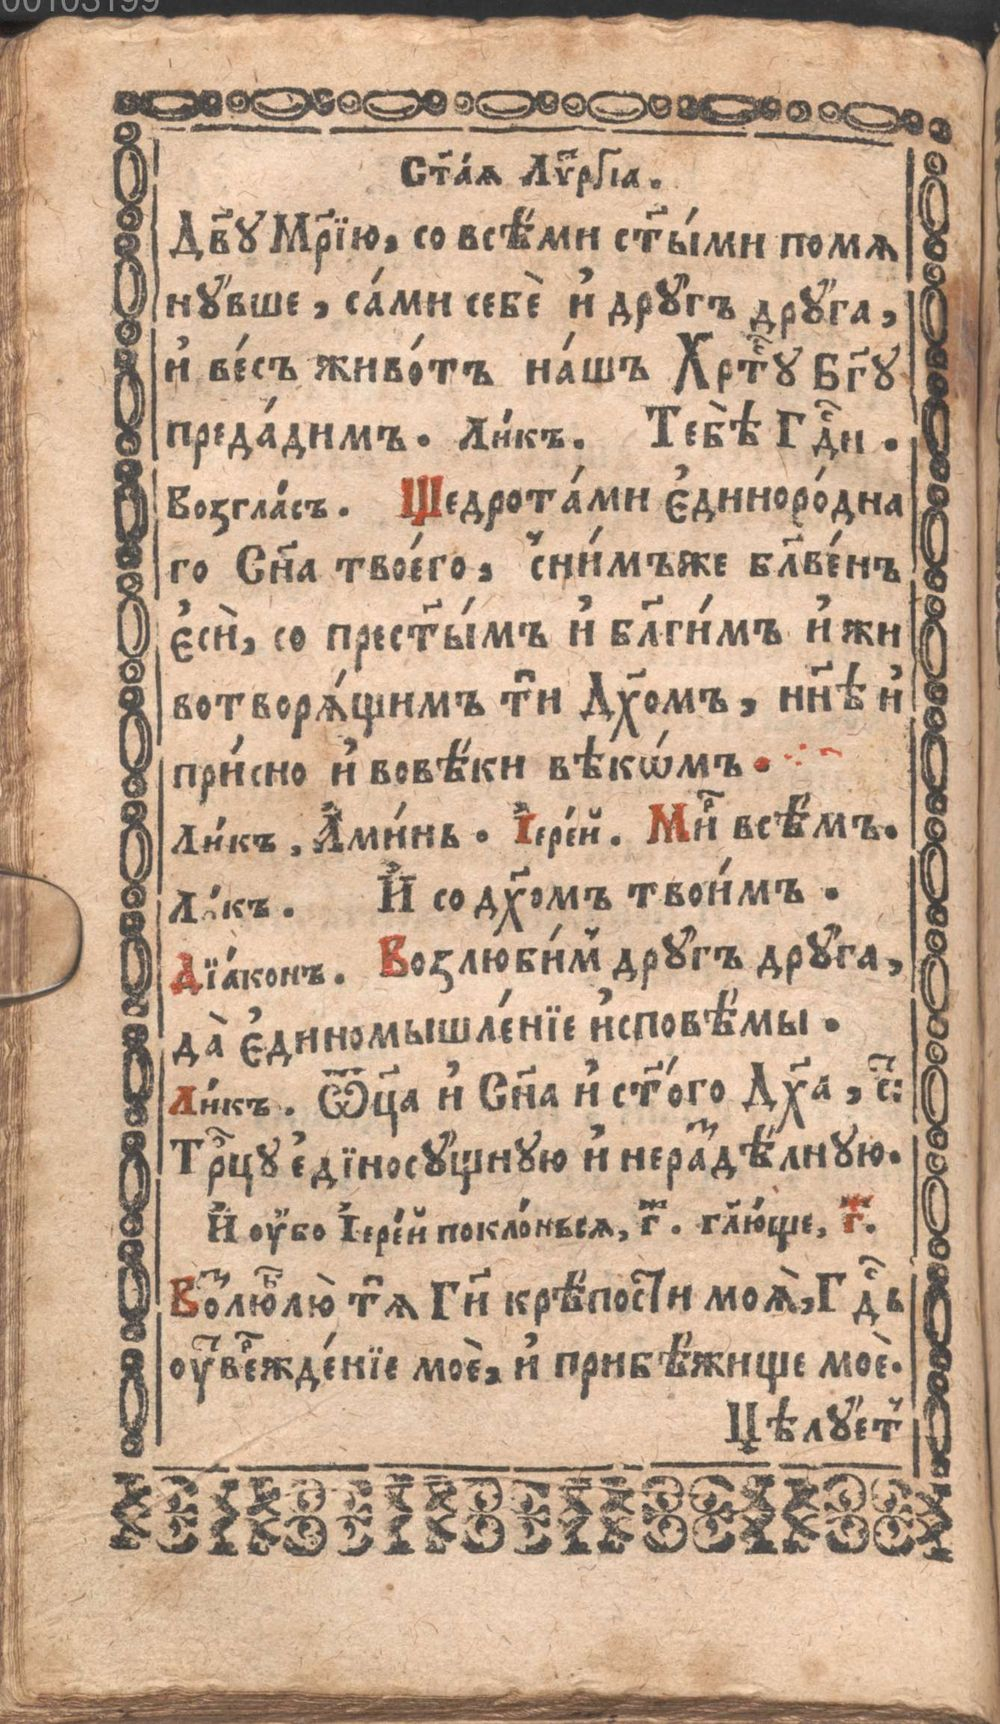 00103199
Ст҃а́ѧ Лꙋ҃ргіа.
Дв҃ꙋ Мр҃їю, со всѣ́ми ст҃ы́ми помѧ
нꙋ́вше, са́ми себѐ и҆ дрꙋ́гъ дрꙋ́га,
и҆ ве́сь живо́тъ на́шъ Хрт҃ꙋ Бг҃ꙋ
преда́димъ. Ли́къ. Тебѣ̀ Гдⷭ҇и.
Возгла́съ. Щедрота́ми є҆диноро́дна
го Сн҃а твоегѡ, сни́мъже блв҃е́нъ
є҆сѝ, со прест҃ы́мъ и҆ бл҃ги́мъ и҆ жи
вотворѧ́щимъ тиⷨ Дх҃омъ, нн҃ѣ и҆
при́сно и҆ вовѣ́ки вѣкѡ́мъ.
Ли́къ, А҆ми́нь. І҆ере́й. Миⷬ҇ всѣ́мъ.
Ли́къ. И҆ со дх҃омъ твои́мъ.
Дїа́конъ. Возлюби́мⷨ дрꙋ́гъ дрꙋ́га,
да̀ є҆диномышле́нїе и҆сповѣ́мы.
Ли́къ. Ѿц҃а и҆ Сн҃а и҆ ст҃о́го Дх҃а, с҃:
Трⷪ҇цꙋ є҆дїносꙋ́щнꙋю и҆ нераⷥдѣ́лнꙋю.
И҆ оу҆́бо І҆ере́й покло́нься, г҃. гл҃ю́ще, г҃.
Воⷥлюⷠлю̀ тѧⷨ Ги҃ крѣ́пости моѧ̀, Гдⷭ҇ь
оу҆твеⷬ҇жде́нїе моѐ, и҆ прибѣ́жище моѐ.
Цѣлꙋ́етⷮ